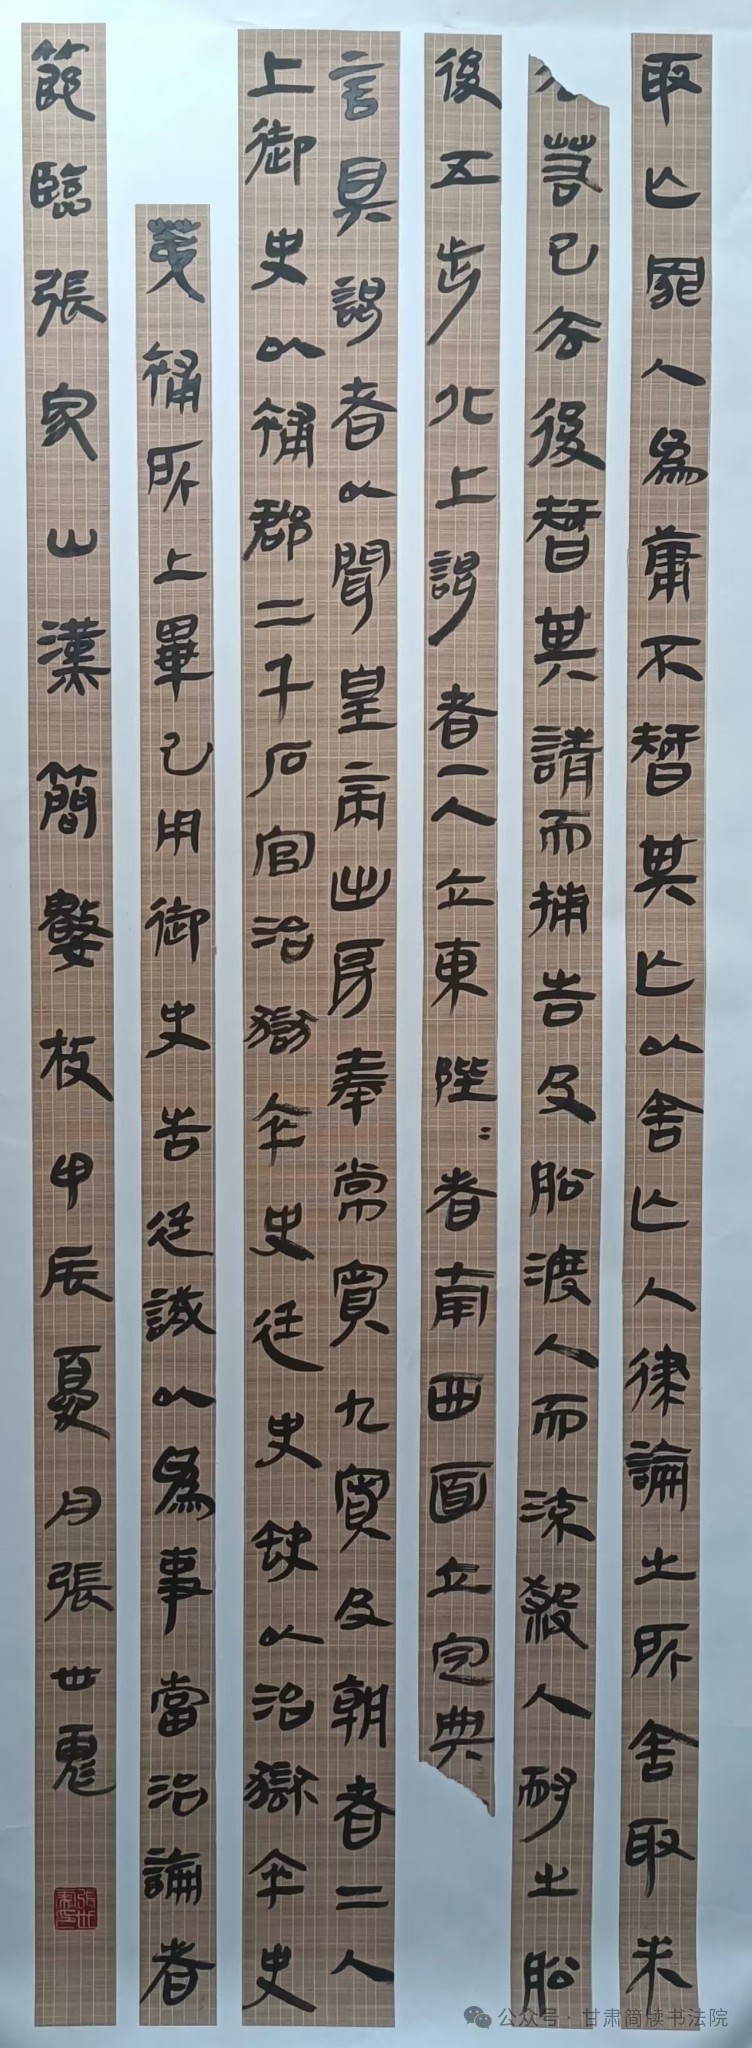 取亡罪人為庸不智其亡以舍亡人律論之所舍取未
若已告後智其請而捕告及船渡人而流殺人耐之船
後五步北上謁者一人立東陛=者南西面立定典
言具謁者以聞皇帝出房奉常賓九賓及朝者二人
上御史以補郡二千石官治獄卒史廷史缺以治獄卒史
補所上畢已用御史告廷議以為事當治論者
節臨張家山漢簡數枚甲辰夏月張世
公众号·甘肃简牍书法院